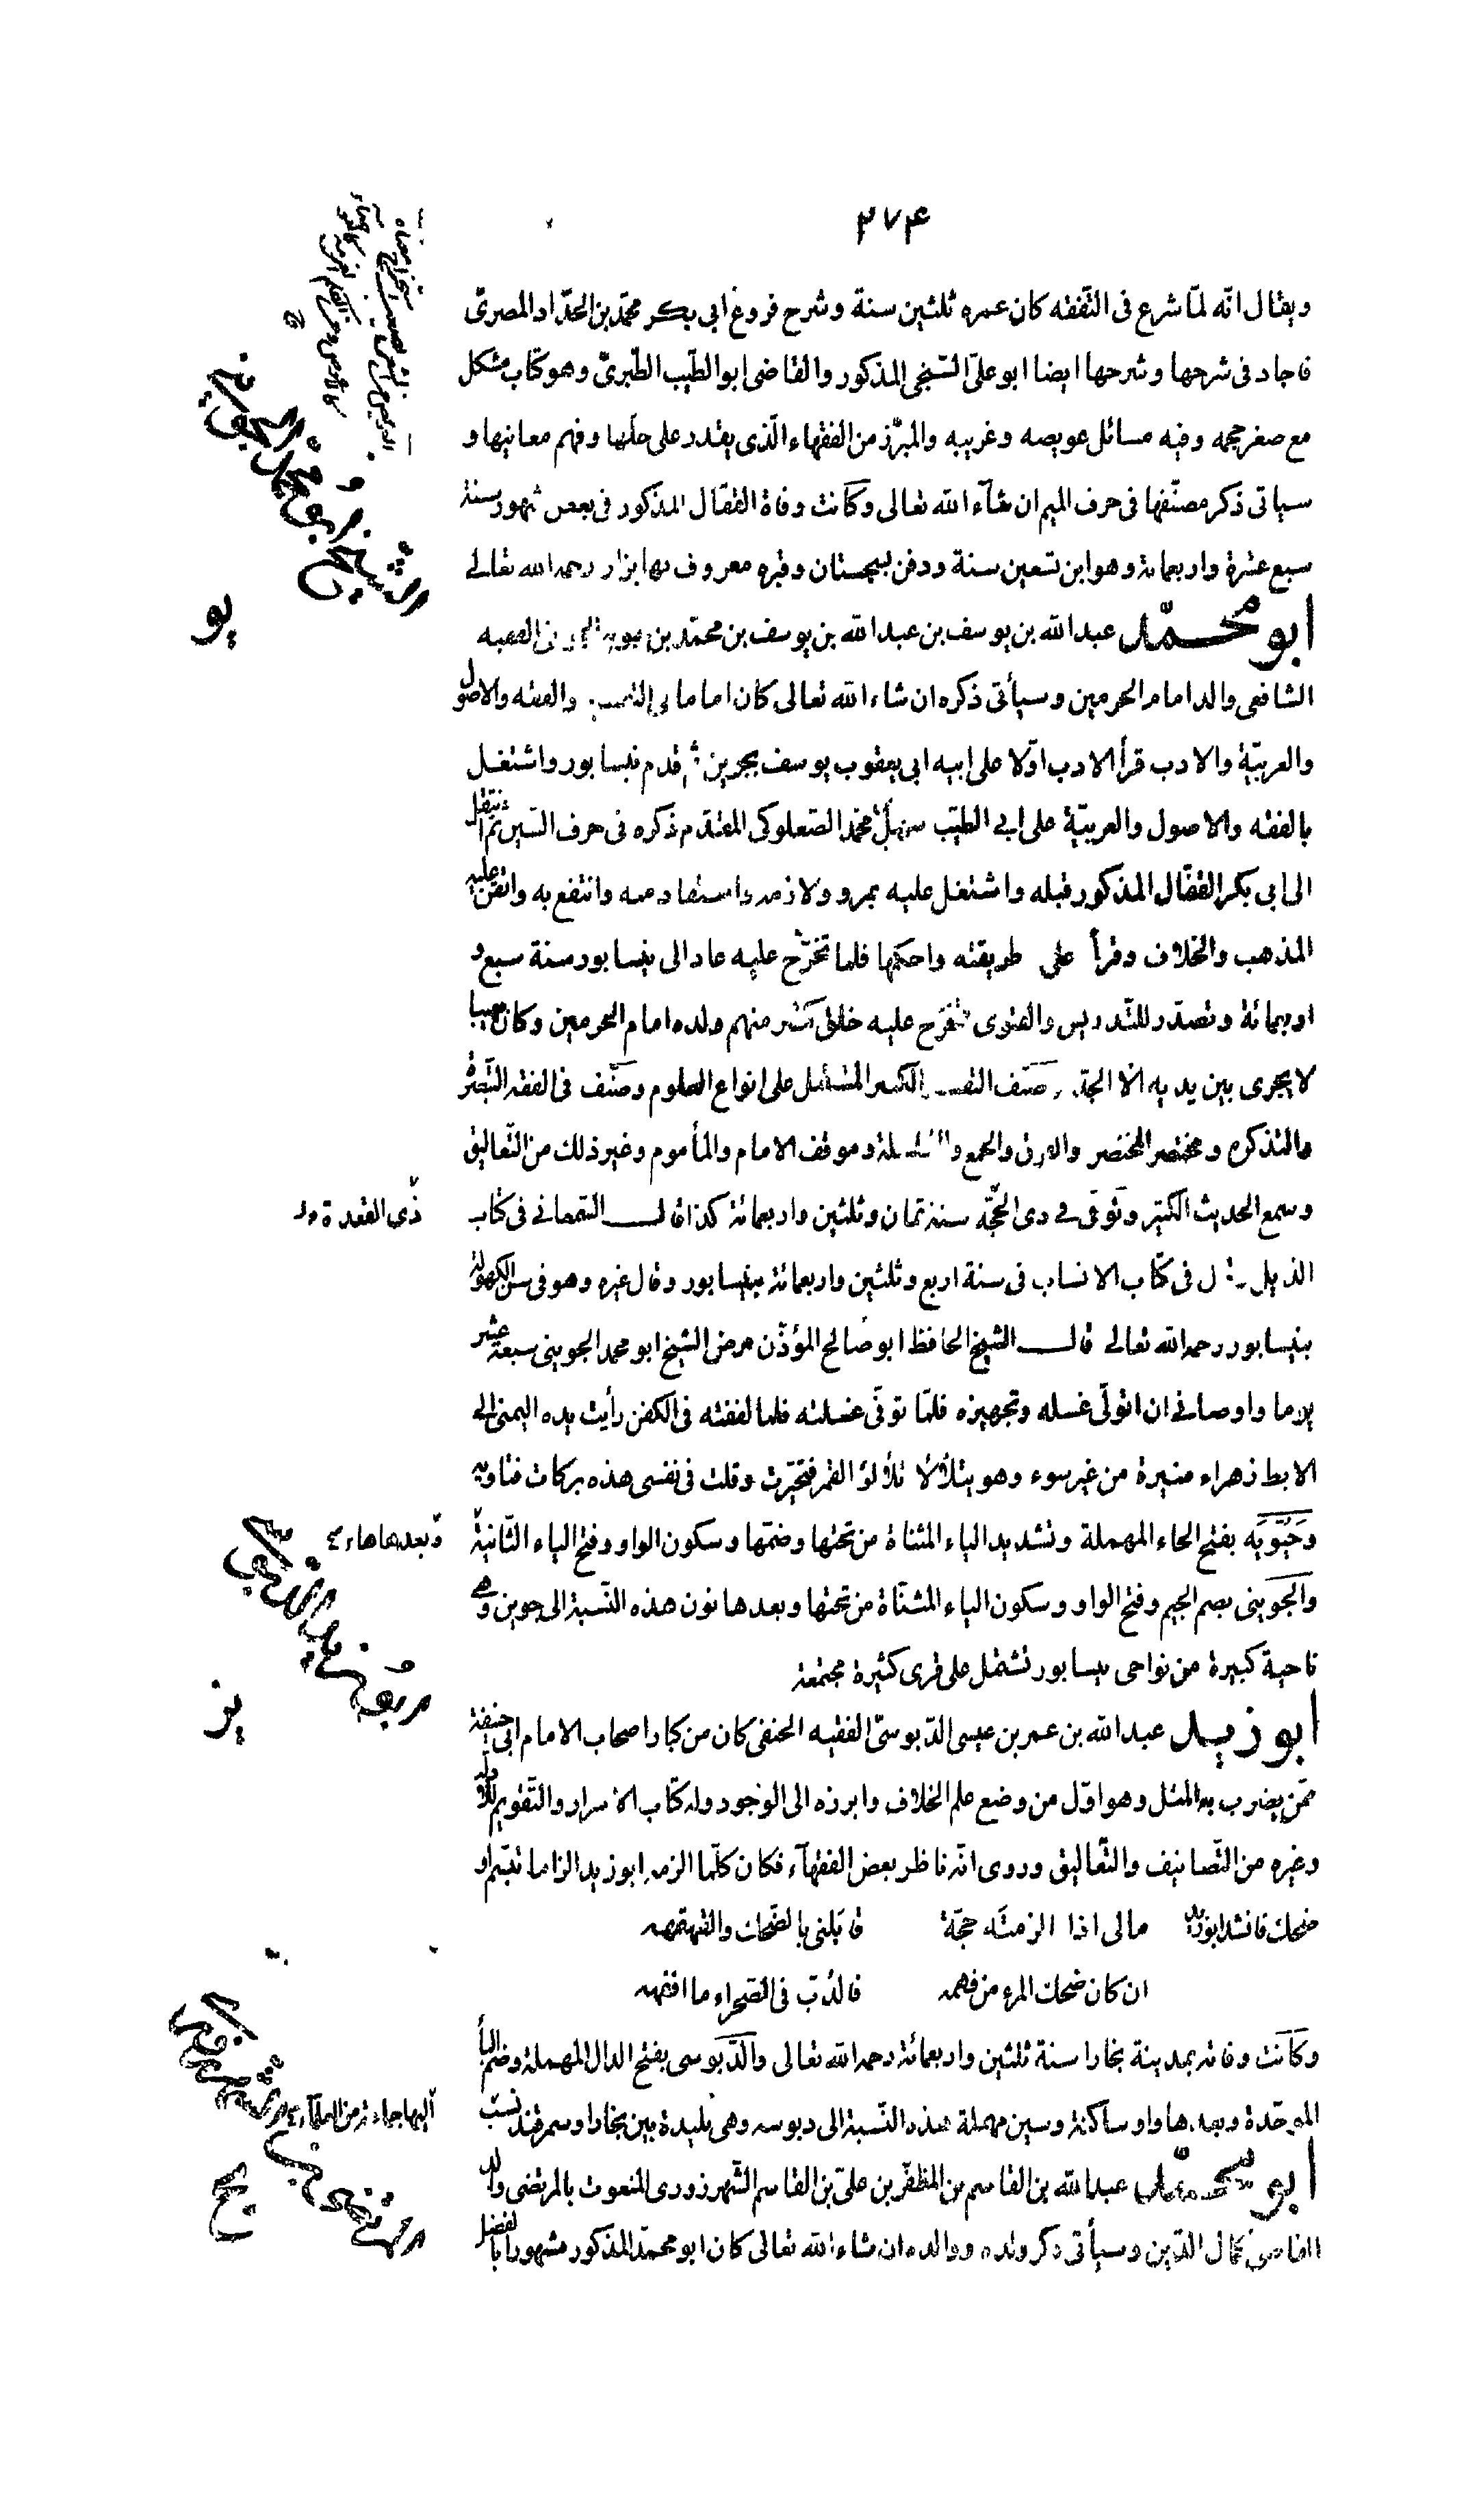 ٢٧۴
ويقال انّه لمّا شرع فى التّفقه كان عمره ثلثين سنة وشرح فروع ابى بكر محمّد بن الحدّاد المصرىّ
فاجاد فى شرحها وشرحها ايضا ابو علىّ السّنجى المذكور والقاضى ابو الطّيب الطّبرىّ وهو كتاب مشكل
مع صغر حجمه وفيه مسائل عويصه وغريبه والمبرّز من الفقهاء الّذى يقدر على حلّها وفهم معانيها و
سياتى ذكر مصنّفها فى حرف الميم ان شآء الله تعالى وكانت وفاة القفّال المذكور فى بعض شهور سنة
سبع عشرة واربعمائة وهو ابن تسعين سنة ودفن بسجستان وقبره معروف بها يزار رحمه الله تعالى
ابو محمّد عبد الله بن يوسف بن عبد الله بن يوسف بن محمّد بن حيويه الجوينى الفقيه
الشافعى والد امام الحرمين وسيأتى ذكره ان شاء الله تعالى كان اماما فى التفسير والفقه والاصول
والعربيّة والادب قرأ الادب اوّلا على ابيه ابى يعقوب يوسف بجوين ثم قدم نيسابور واشتغل
بالفقه والاصول والعربيّة على ابى الطيّب سهل بن محمّد الصّعلوكى المقدّم ذكره فى حرف السّين ثمّ انتقل
الى ابى بكر القفّال المذكور قبله واشتغل عليه بمرو ولازمه واستفاد منه وانتفع به واتقن عليه
المذهب والخلاف وقرأ على طريقته واحكمها فلما تخرّج عليه عاد الى نيسابور سنة سبع و
اربعمائة وتصدّر للتّدريس والفتوى فتخرّج عليه خلق كثير منهم ولده امام الحرمين وكان مهيبا
لا يجرى بين يديه الّا الجدّ وصنّف التفسير الكبير المشتمل على انواع العلوم وصنّف فى الفقه التّبصرة
والتذكره ومختصر المختصر والفرق والجمع والسلسلة وموقف الامام والمأموم وغير ذلك من التّعاليق
وسمع الحديث الكثير وتوفّى فى ذى الحجّه سنة ثمان وثلثين واربعمائة كذا قال السّمعانى فى كتاب
ذى القعدة
الذيل وقال فى كتاب الانساب فى سنة اربع وثلثين واربعمائة بنيسابور وقال غيره وهو فى سنّ الكهولة
بنيسابور رحمه الله تعالى قال الشيخ الحافظ ابو صالح المؤذّن مرض الشيخ ابو محمد الجوينى سبعة عشر
يوما واوصانى ان اتولّى غسله وتجهيزه فلمّا توفّى غسلته فلما لففته فى الكفن رأيت يده اليمنى الى
الابط زهراء منيرة من غير سوء وهو يتلألأ تلألؤ القمر فتحيّرت وقلت فى نفسى هذه بركات فتاويه
وحيّويه بفتح الحاء المهملة وتشديد الياء المثناة من تحتها وضمّها وسكون الواو وفتح الياء الثّانية
وبعدها هاء
والجوينى بضم الجيم وفتح الواو وسكون الياء المثنّاة من تحتها وبعدها نون هذه النّسبة الى جوين وهى
ناحية كبيرة من نواحى نيسابور تشتمل على قرى كثيرة مجتمعة
ابو زيد عبد الله بن عمر بن عيسى الدّبوسىّ الفقيه الحنفى كان من كبار اصحاب الامام ابى حنيفة
ممّن يضرب به المثل وهو اوّل من وضع علم الخلاف وابرزه الى الوجود وله كتاب الاسرار والتّقويم للادله
وغيره من التّصانيف والتّعاليق وروى انّه ناظر بعض الفقهآء فكان كلّما الزمه ابو زيد الزاما تبسّم او
ضحك فانشد ابو زيد مالى اذا الزمته حجّة قابلنى بالضّحك والقهقهه
ان كان ضحك المرء من فهمه فالدّب فى الصّحراء ما افقهه
وكانت وفاته بمدينة بخارا سنة ثلثين واربعمائة رحمه الله تعالى والدّبوسى بفتح الدال المهملة وضم البآ
الموحّدة وبعدها واو ساكنة وسين مهملة هذه النّسبة الى دبوسه وهى بليدة بين بخارا وسمرقند نسب
اليها جماعة من العلمآء
ابو محمّد عبد الله بن القاسم بن المظفّر بن علىّ بن القاسم الشّهرزورى المنعوت بالمرتضى والد
القاضى كمال الدّين وسيأتى ذكر ولده ووالده ان شاء الله تعالى كان ابو محمّد المذكور مشهورا بالفضل